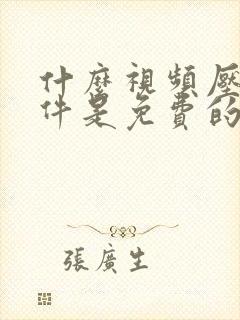 什麼視頻壓
件是免費的
張廣生